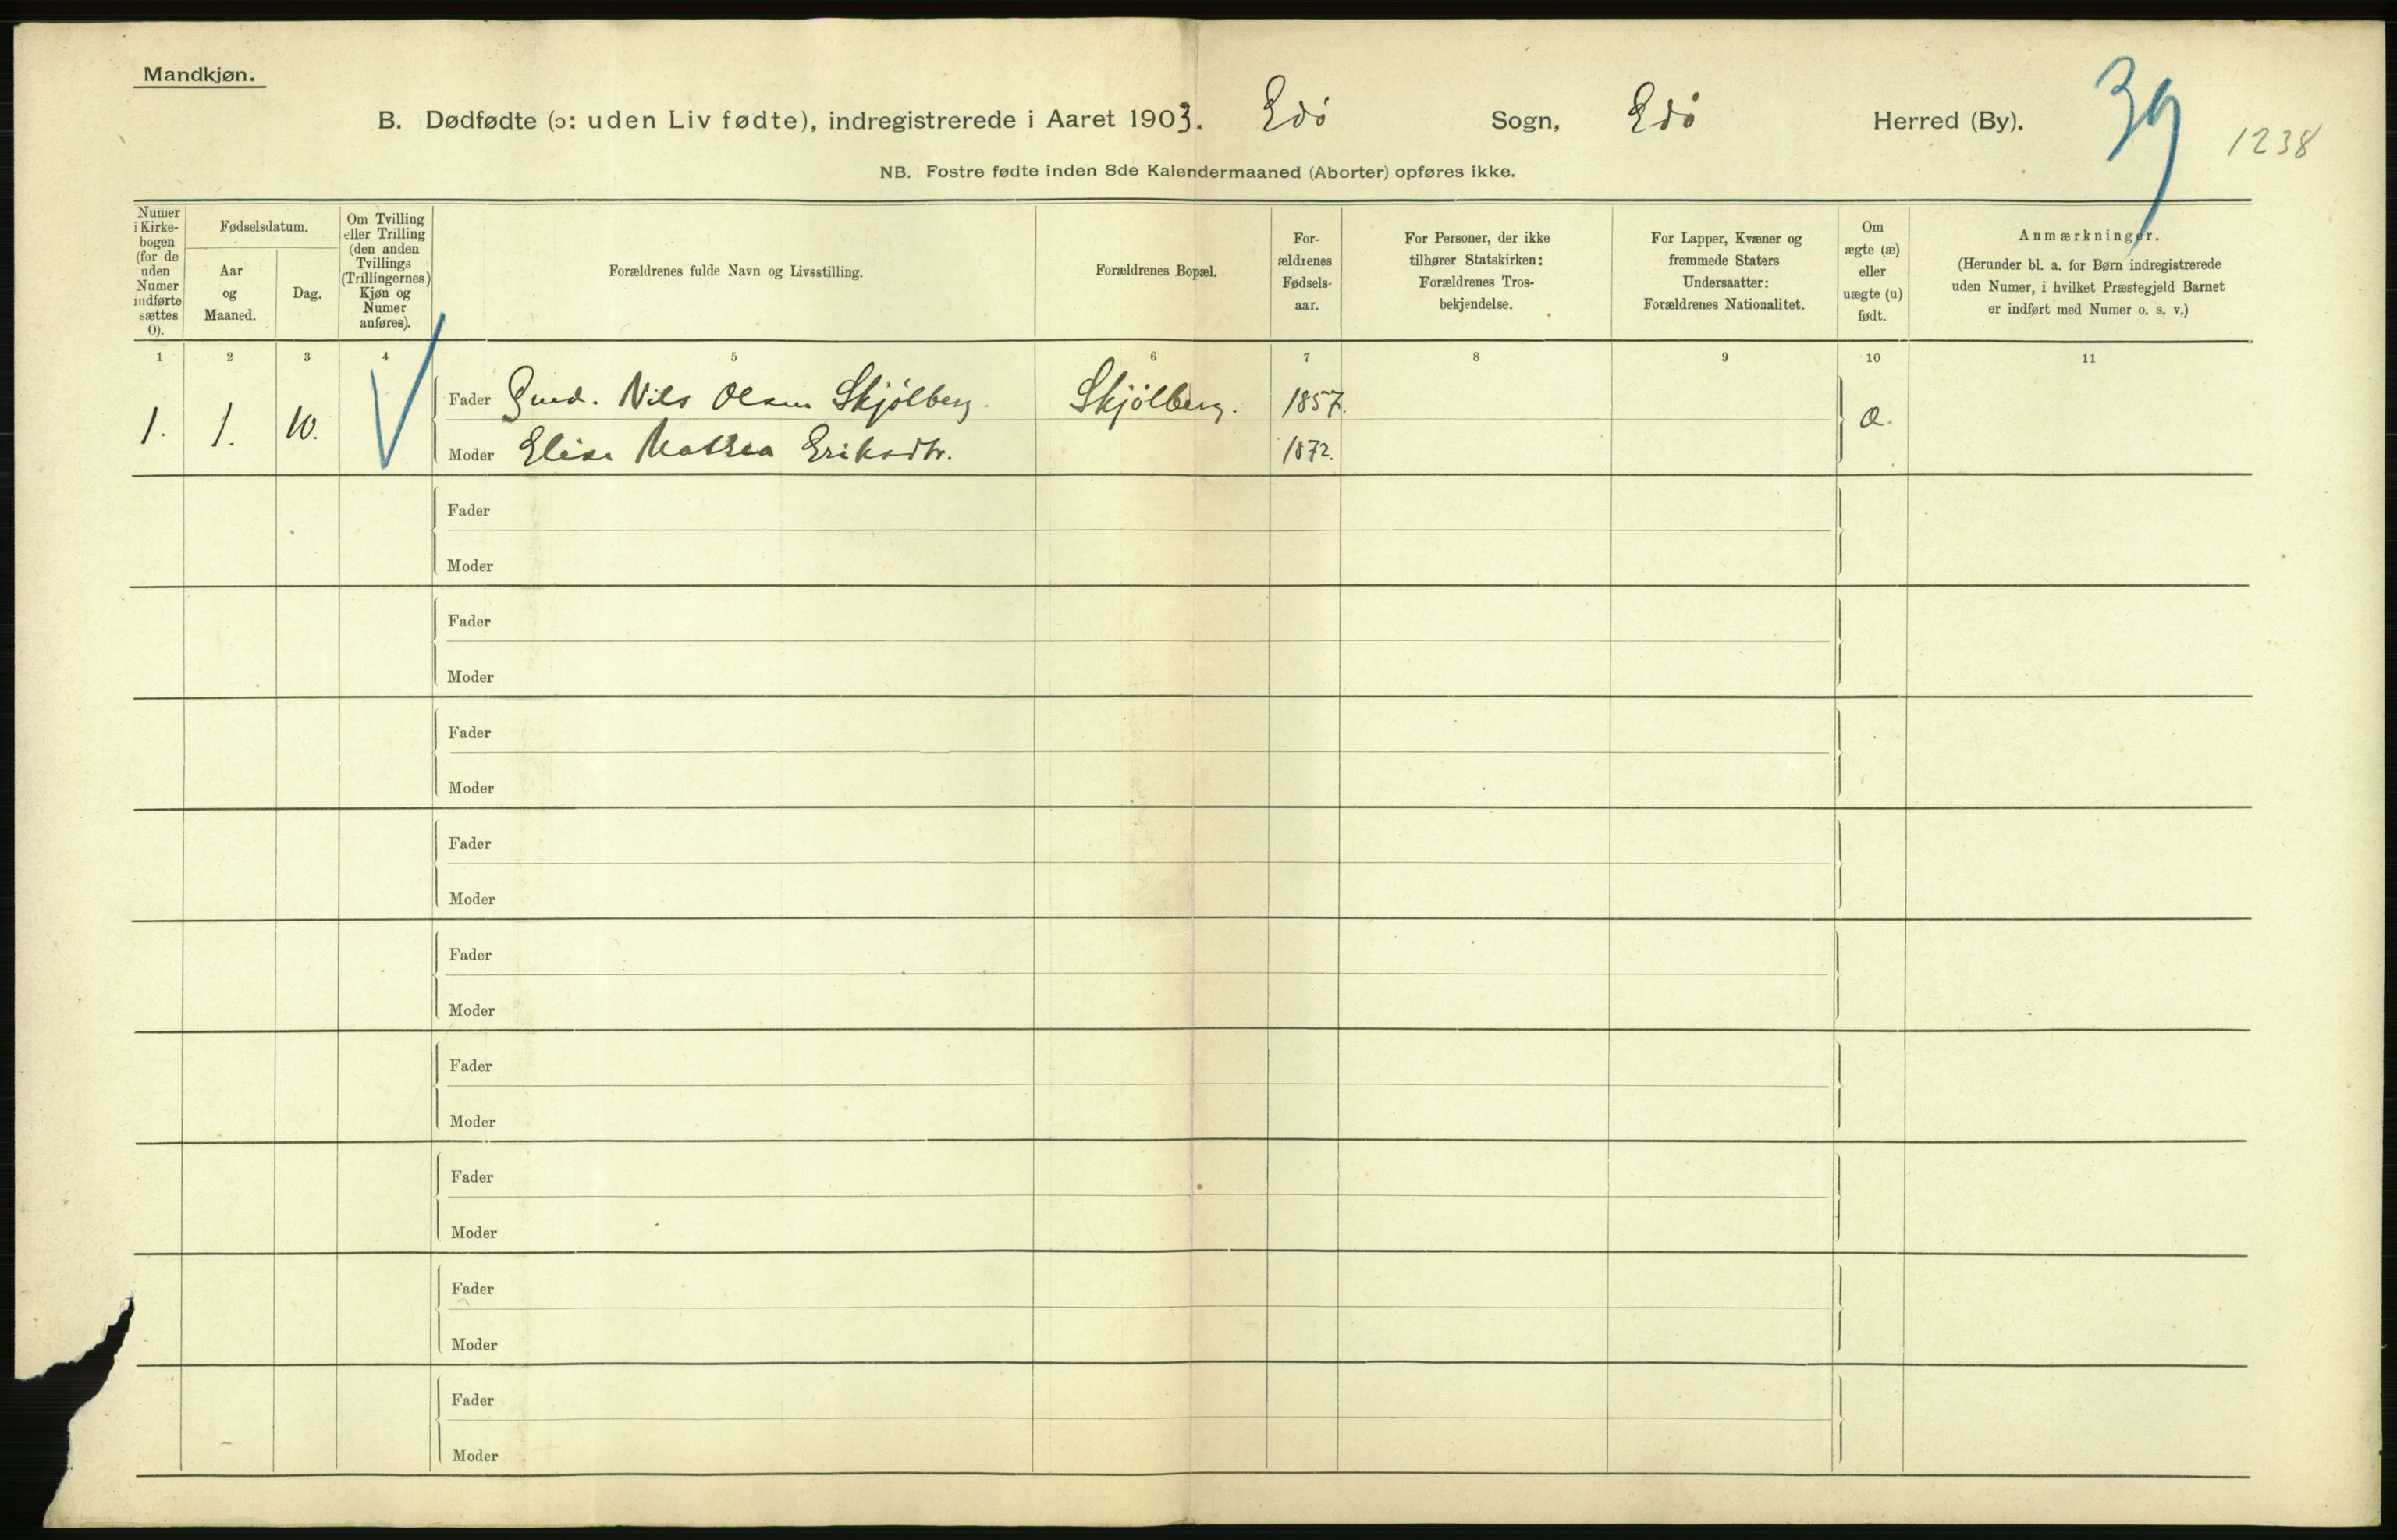 Mandkjøn.
B. Dødfødte (ɔ: uden Liv fødte), indregistrerede i Aaret 1903. Edö Sogn, Edö Herred (By). 39
1238
NB. Fostre fødte inden 8de Kalendermaaned (Aborter) opføres ikke.
Numer i Kirke-bogen (for de uden Numer indførte sættes 0).
Fødselsdatum.
Aar og Maaned.
Dag.
Om Tvilling eller Trilling (den anden Tvillings (Trillingernes) Kjøn og Numer anføres).
Forældrenes fulde Navn og Livsstilling.
Forældrenes Bopæl.
For-ældrenes Fødsels-aar.
For Personer, der ikke tilhører Statskirken: Forældrenes Tros-bekjendelse.
For Lapper, Kvæner og fremmede Staters Undersaatter: Forældrenes Nationalitet.
Om ægte (æ) eller uægte (u) født.
Anmærkninger.
(Herunder bl. a. for Børn indregistrerede uden Numer, i hvilket Præstegjeld Barnet er indført med Numer o. s. v.)
1 2 3 4 5 6 7 8 9 10 11
Fader Gmd. Nils Olsen Skjölberg. Skjölberg. 1857.
1. 1. 10. æ.
Moder Elise Mathea Eriksdtr. 1872.
Fader
Moder
Fader
Moder
Fader
Moder
Fader
Moder
Fader
Moder
Fader
Moder
Fader
Moder
Fader
Moder
Fader
Moder